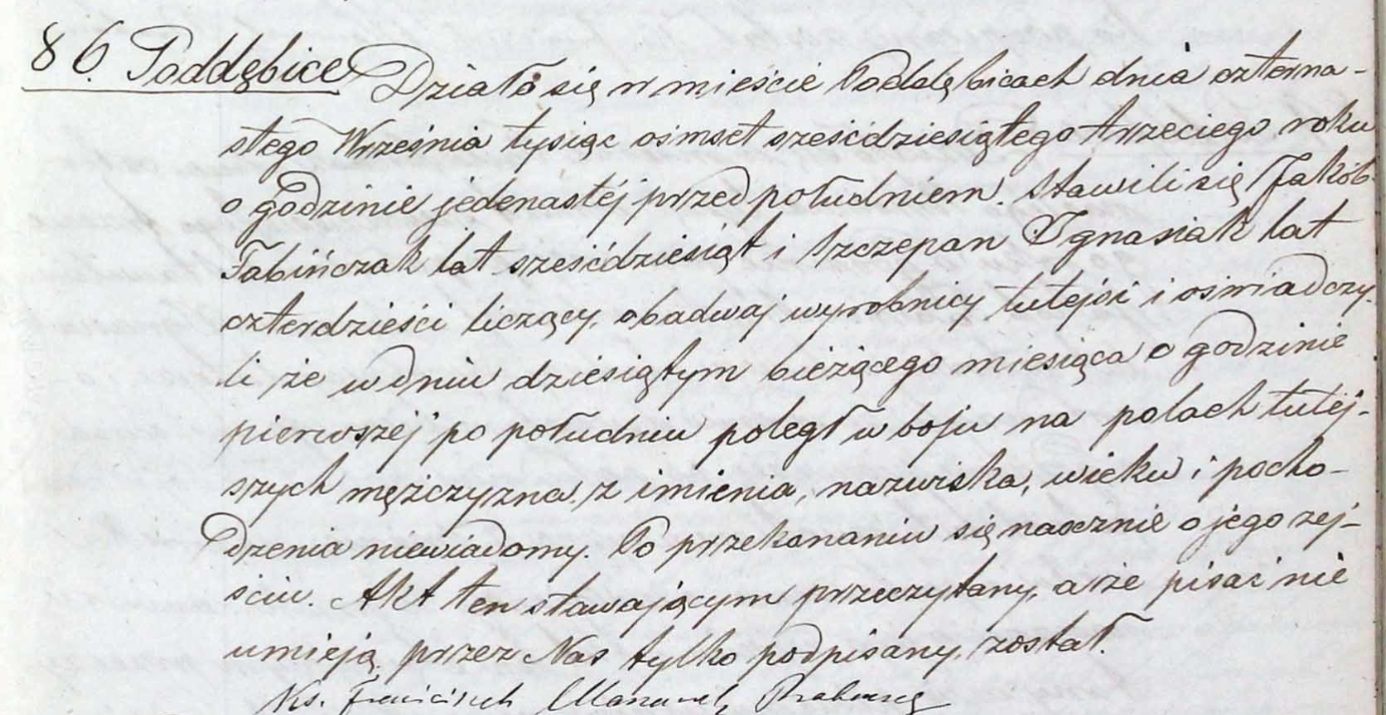 86. Poddębice Działo się w mieście Poddębicach dnia czterna-
stego Września tysiąc ośmset sześćdziesiątego trzeciego roku
o godzinie jedenastéj przed południem. Stawili się Jakób
Fabińczak lat sześćdziesiąt i Szczepan Ignasiak lat
czterdzieści liczący, obadwaj wyrobnicy tutejsi i oświadczy-
li że w dniu dziesiątym bieżącego miesiąca o godzinie
pierwszéj po południu poległ w boju na polach tutej-
szych mężczyzna, z imienia, nazwiska, wieku i pocho-
dzenia niewiadomy. Po przekonaniu się naocznie o jego zej-
ściu Akt ten stawającym przeczytany, a że pisać nie
umieją przez Nas tylko podpisany został.